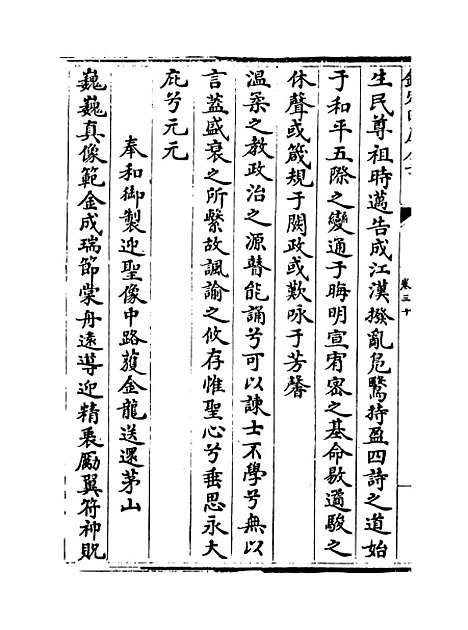 欽定四庫全書
卷三十
生民尊祖時邁告成江漢撥亂鳧鷖持盈四詩之道始
于和平五際之變通于晦明宣宥密之基命敭遹駿之
休聲或箴規于闕政或歎咏于芳馨
溫柔之教政治之源瞽能誦兮可以諫士不學兮無以
言蓋盛衰之所繫故諷諭之攸存惟聖心兮垂思永大
庇兮元元
奉和御製迎聖像中路獲金龍送還茅山
巍巍真像範金成瑞節棠舟遠導迎精裹勵翼符神貺